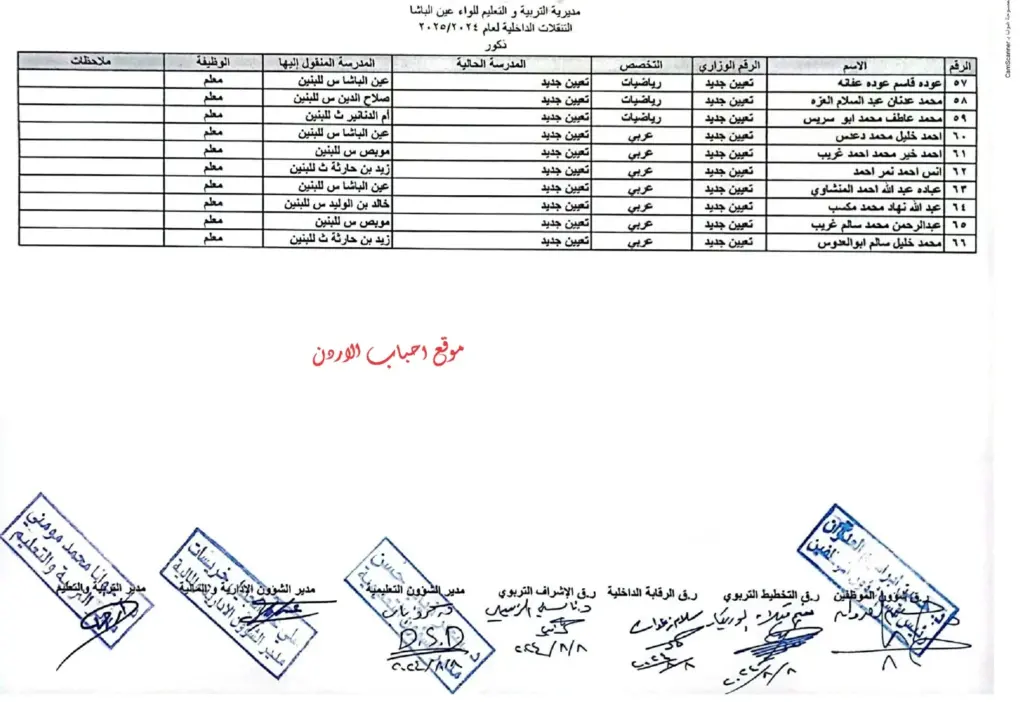 مديرية التربية و التعليم للواء عين الباشا
التنقلات الداخلية لعام ٢٠٢٥/٢٠٢٤
ذكور
الرقم الاسم الرقم الوزاري التخصص المدرسة الحالية المدرسة المنقول إليها الوظيفة ملاحظات
٥٧ عوده قاسم عوده عفانه تعيين جديد رياضيات تعيين جديد عين الباشا س للبنين معلم
٥٨ محمد عدنان عبد السلام العزه تعيين جديد رياضيات تعيين جديد صلاح الدين س للبنين معلم
٥٩ محمد عاطف محمد ابو سريس تعيين جديد رياضيات تعيين جديد أم الدنانير ث للبنين معلم
٦٠ احمد خليل محمد دعس تعيين جديد عربي تعيين جديد عين الباشا س للبنين معلم
٦١ احمد خير محمد احمد غريب تعيين جديد عربي تعيين جديد موبص س للبنين معلم
٦٢ انس احمد نمر احمد تعيين جديد عربي تعيين جديد زيد بن حارثة ث للبنين معلم
٦٣ عباده عبد الله احمد المنشاوي تعيين جديد عربي تعيين جديد عين الباشا س للبنين معلم
٦٤ عبد الله نهاد محمد مكسب تعيين جديد عربي تعيين جديد خالد بن الوليد س للبنين معلم
٦٥ عبدالرحمن محمد سالم غريب تعيين جديد عربي تعيين جديد موبص س للبنين معلم
٦٦ محمد خليل سالم ابوالعدوس تعيين جديد عربي تعيين جديد زيد بن حارثة ث للبنين معلم
موقع احباب الاردن
ر.ق شؤون الموظفين ر.ق التخطيط التربوي ر.ق الرقابة الداخلية ر.ق الإشراف التربوي مدير الشؤون التعليمية مدير الشؤون الإدارية والمالية مدير التربية والتعليم
D.S.D
٢٠٢٤/٨/٨
CamScanner